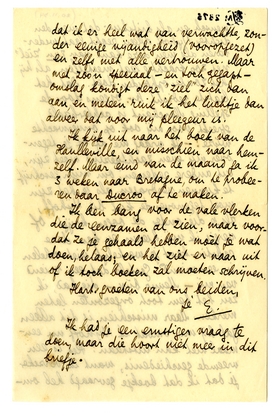 dat ik er heel wat van verwachtte, zon-
der eenige vijandigheid (vooropgezet)
en zelfs met alle vertrouwen. Maar
met zoo'n speciaal - en toch gejapt-
omslag kondigt deze "ziel" zich dan
aan en meteen ruik ik het luchtje dan
alweer dat voor mij pleegeur is.
Ik kijk uit naar het boek van de
Haulleville, en misschien naar hem-
zelf. Maar eind van de maand ga ik
3 weken naar Bretagne, om te probee-
ren daar Ducroo af te maken.
Ik ben bang voor de vale vlerken
die de eenzamen al zien, maar voor-
dat ze je gehaald hebben moet je wat
doen, helaas; en het ziet er naar uit
of ik toch boeken zal moeten schrijven.
Hart. groeten van ons beiden,
je E.
Ik had je een ernstiger vraag te
doen, maar die hoort niet meer in dit
briefje.